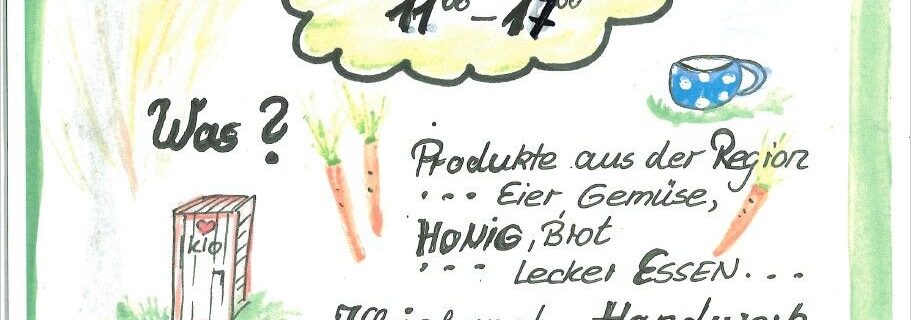 11⁰⁰ – 17⁰⁰
Was?
Produkte aus der Region
... Eier Gemüse,
HONIG, Brot
... lecker ESSEN...
Klo
Handwerk